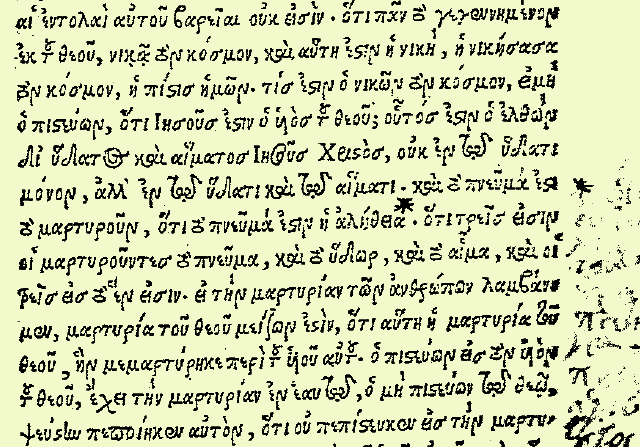 αἱ ἐντολαὶ αὐτοῦ βαρεῖαι οὐκ εἰσὶν· ὅτι πᾶν τὸ γεγεννημένον
ἐκ τοῦ θεοῦ, νικᾷ τὸν κόσμον, καὶ αὕτη ἐστὶν ἡ νίκη, ἡ νικήσασα
τὸν κόσμον, ἡ πίστις ἡμῶν· τίς ἐστιν ὁ νικῶν τὸν κόσμον, εἰ μὴ
ὁ πιστεύων, ὅτι Ἰησοῦς ἐστιν ὁ ὑιὸς τοῦ θεοῦ; οὗτός ἐστιν ὁ ἐλθὼν
δι ὕδατος καὶ αἵματος Ἰησοῦς Χριστὸς, οὐκ ἐν τῷ ὕδατι
μόνον, ἀλλ' ἐν τῷ ὕδατι καὶ τῷ αἵματι· καὶ τὸ πνεῦμά ἐστι
τὸ μαρτυροῦν, ὅτι τὸ πνεῦμά ἐστιν ἡ ἀλήθεια· ὅτι τρεῖς εἰσιν
οἱ μαρτυροῦντες τὸ πνεῦμα, καὶ τὸ ὕδωρ, καὶ τὸ αἷμα, καὶ οἱ
τρεῖς εἰς τὸ ἕν εἰσιν· εἰ τὴν μαρτυρίαν τῶν ἀνθρώπων λαμβάνο
μεν, μαρτυρία τοῦ θεοῦ μείζων ἐστὶν, ὅτι αὕτη ἡ μαρτυρία τοῦ
θεοῦ, ἣν μεμαρτύρηκε περὶ τοῦ ὑιοῦ αὐτοῦ· ὁ πιστεύων εἰς τὸν ὑιὸν
τοῦ θεοῦ, ἔχει τὴν μαρτυρίαν ἐν ἑαυτῷ, ὁ μὴ πιστεύων τῷ θεῷ,
ψεύστην πεποίηκεν αὐτὸν, ὅτι οὐ πεπίστευκεν εἰς τὴν μαρτυ